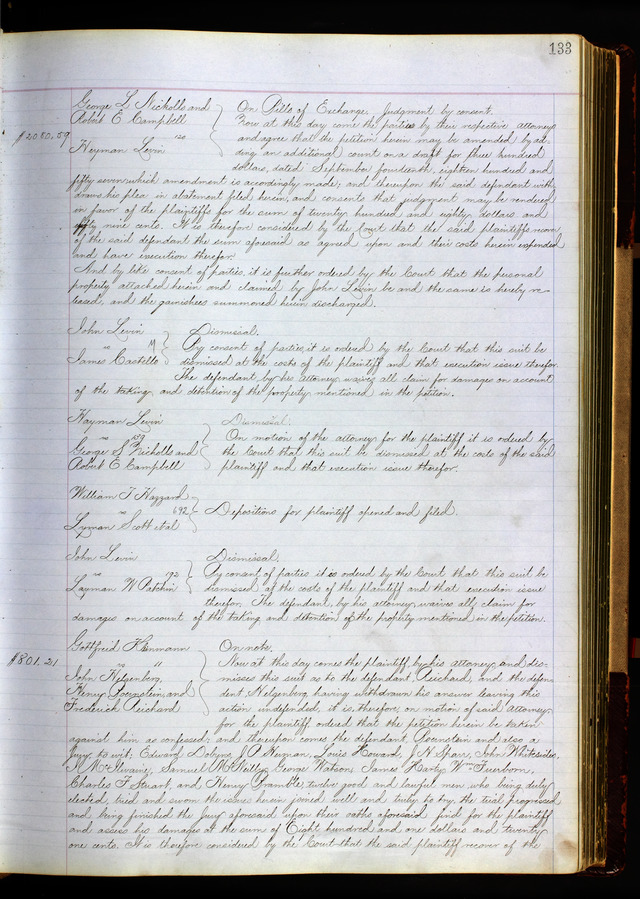 133
George L Nicholls and
Robert E Campbell
On Bills of Exchange. Judgment by consent.
Now at this day come the parties by their respective attorneys
$2080.59
120
and agree that the petition herein may be amended by ad-
Heyman Levin
ding an additional count on a draft for three hundred
dollars, dated September fourteenth, eighteen hundred and
fifty seven which amendment is accordingly made, and thereupon the said defendant with
draws his plea in abatement filed herein, and consents that judgment may be rendered
in favor of the plaintiffs for the sum of twenty hundred and eighty dollars and
fifty nine cents. It is therefore considered by the Court that the said plaintiffs recover
of the said defendant the sum aforesaid as agreed upon and their costs herein expended
and have execution therefor.
And by like consent of parties, it is further ordered by the Court that the personal
property attached herein and claimed by John Levin be and the same is hereby re-
leased, and the garnishees summoned herein discharged.
John Levin
Dismissal.
vs
By consent of parties, it is ordered by the Court that this suit be
James Castello
dismissed at the costs of the plaintiff and that execution issue therefor.
The defendant by his attorney, waives all claim for damages on account
of the taking and detention of the property mentioned in the petition.
Hayman Levin
Dismissal.
vs 159
On motion of the attorney for the plaintiff it is ordered by
George S Nicholls and
the Court that this suit be dismissed at the costs of the said
Robert E Campbell
plaintiff and that execution issue therefor.
William T Hazzard
vs 692
Depositions for plaintiff opened and filed.
Lyman Scott et al
John Levin
Dismissal.
vs 192
By consent of parties it is ordered by the Court that this suit be
Layman W Patchin
dismissed at the costs of the plaintiff and that execution issue
therefor. The defendant, by his attorney, waives all claim for
damages on account of the taking and detention of the property mentioned in the petition.
Gottfried
On note.
$801.21
vs "
Now at this day comes the plaintiff by his attorney and dis-
John Helgenberg,
misses this suit as to the defendant, Reichard, and the defen-
Henry Bornstein, and
dent, Helgenberg having withdrawn his answer leaving this
Frederick Reichard
action undefended, it is, therefore, on motion of said attorney
for the plaintiff ordered that the petition herein be taken
against him as confessed; and thereupon comes the defendant, Bornstein and also a
Jury to wit; Edward Dobyns, J A Neuman, Louis Howard, J. H. Sparr, John Whitesides,
McIlvaine, Samuel McNeilly, George Watson, James Harty, Wm Fuerborn,
Charles F Stuart, and Henry Bramble, twelve good and lawful men who being duly
elected, tried and sworn the issue herein joined well and truly to try, the trial progressed
and being finished the Jury aforesaid upon their oaths aforesaid find for the plaintiff
and assess his damages at the sum of Eight hundred and one dollars and twenty
one cents. It is therefore considered by the Court that the said plaintiff recover of the